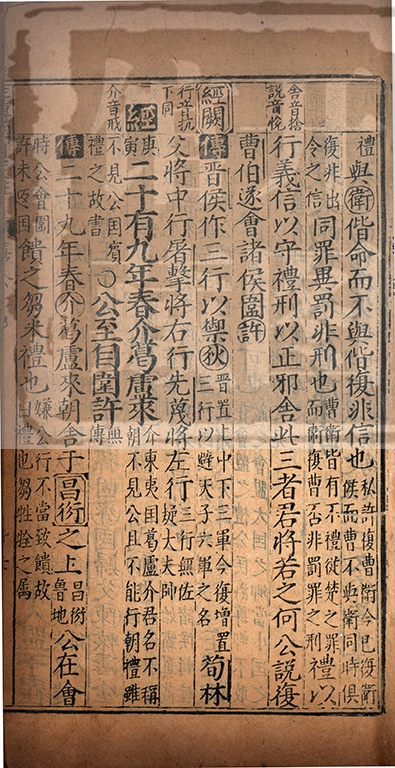 禮與衛偕命而不與偕復非信也私許復曹衛今已復衛侯而曹不與衛同時俱
復非出令之信同罪異罰非刑也曹衛皆有不禮從楚之罪而衛復曹否非罪罰之刑禮以
舍音捨說音悅
行義信以守禮刑以正邪舍此三者君將若之何公說復
曹伯遂會諸侯圍許
經闕
傳晉侯作三行以禦狄晉置上中下三軍今復增置三行以避天子六軍之名荀林
行音抗下同
父將中行屠擊將右行先蔑將左行三行無佐疑大夫帥
經庚寅二十有九年春介葛盧來介東夷國葛盧介君名不稱朝不見公且不能行朝禮雖
介音戒
不見公國賓禮之故書〇公至自圍許無傳
傳二十九年春介葛盧來朝舍于昌衍之上昌衍魯地公在會
時公會圍許未反國饋之芻米禮也嫌公行不當致饋故曰禮也芻牲牷之屬